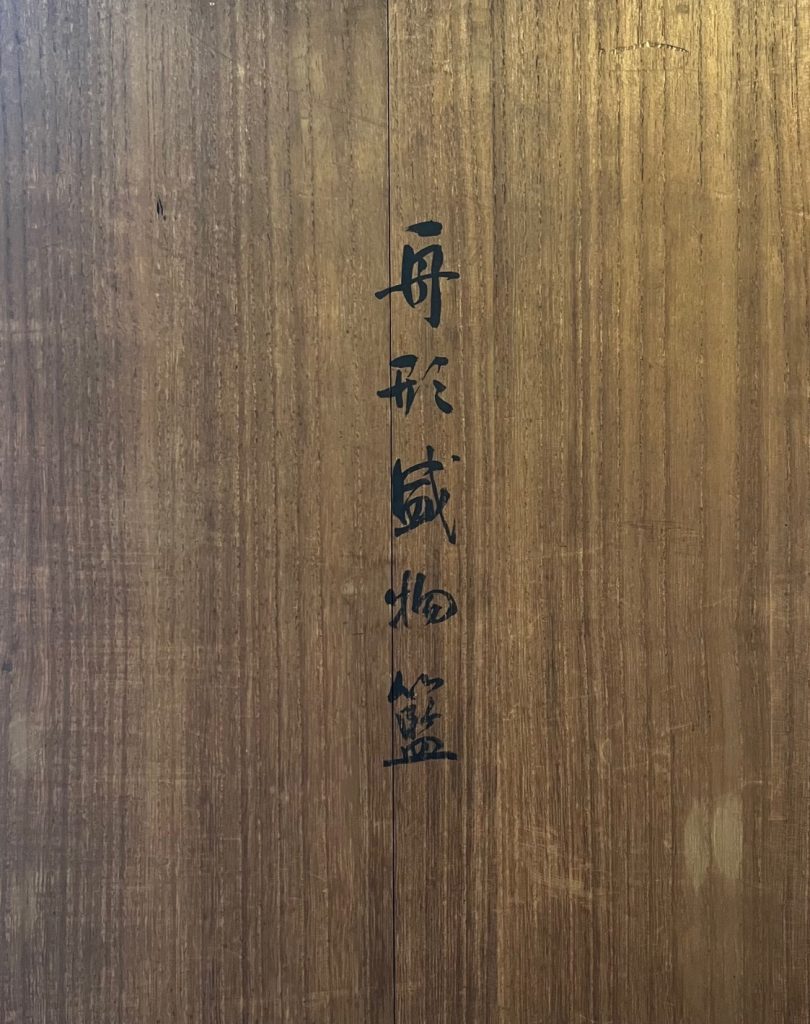 舟形盛物籃